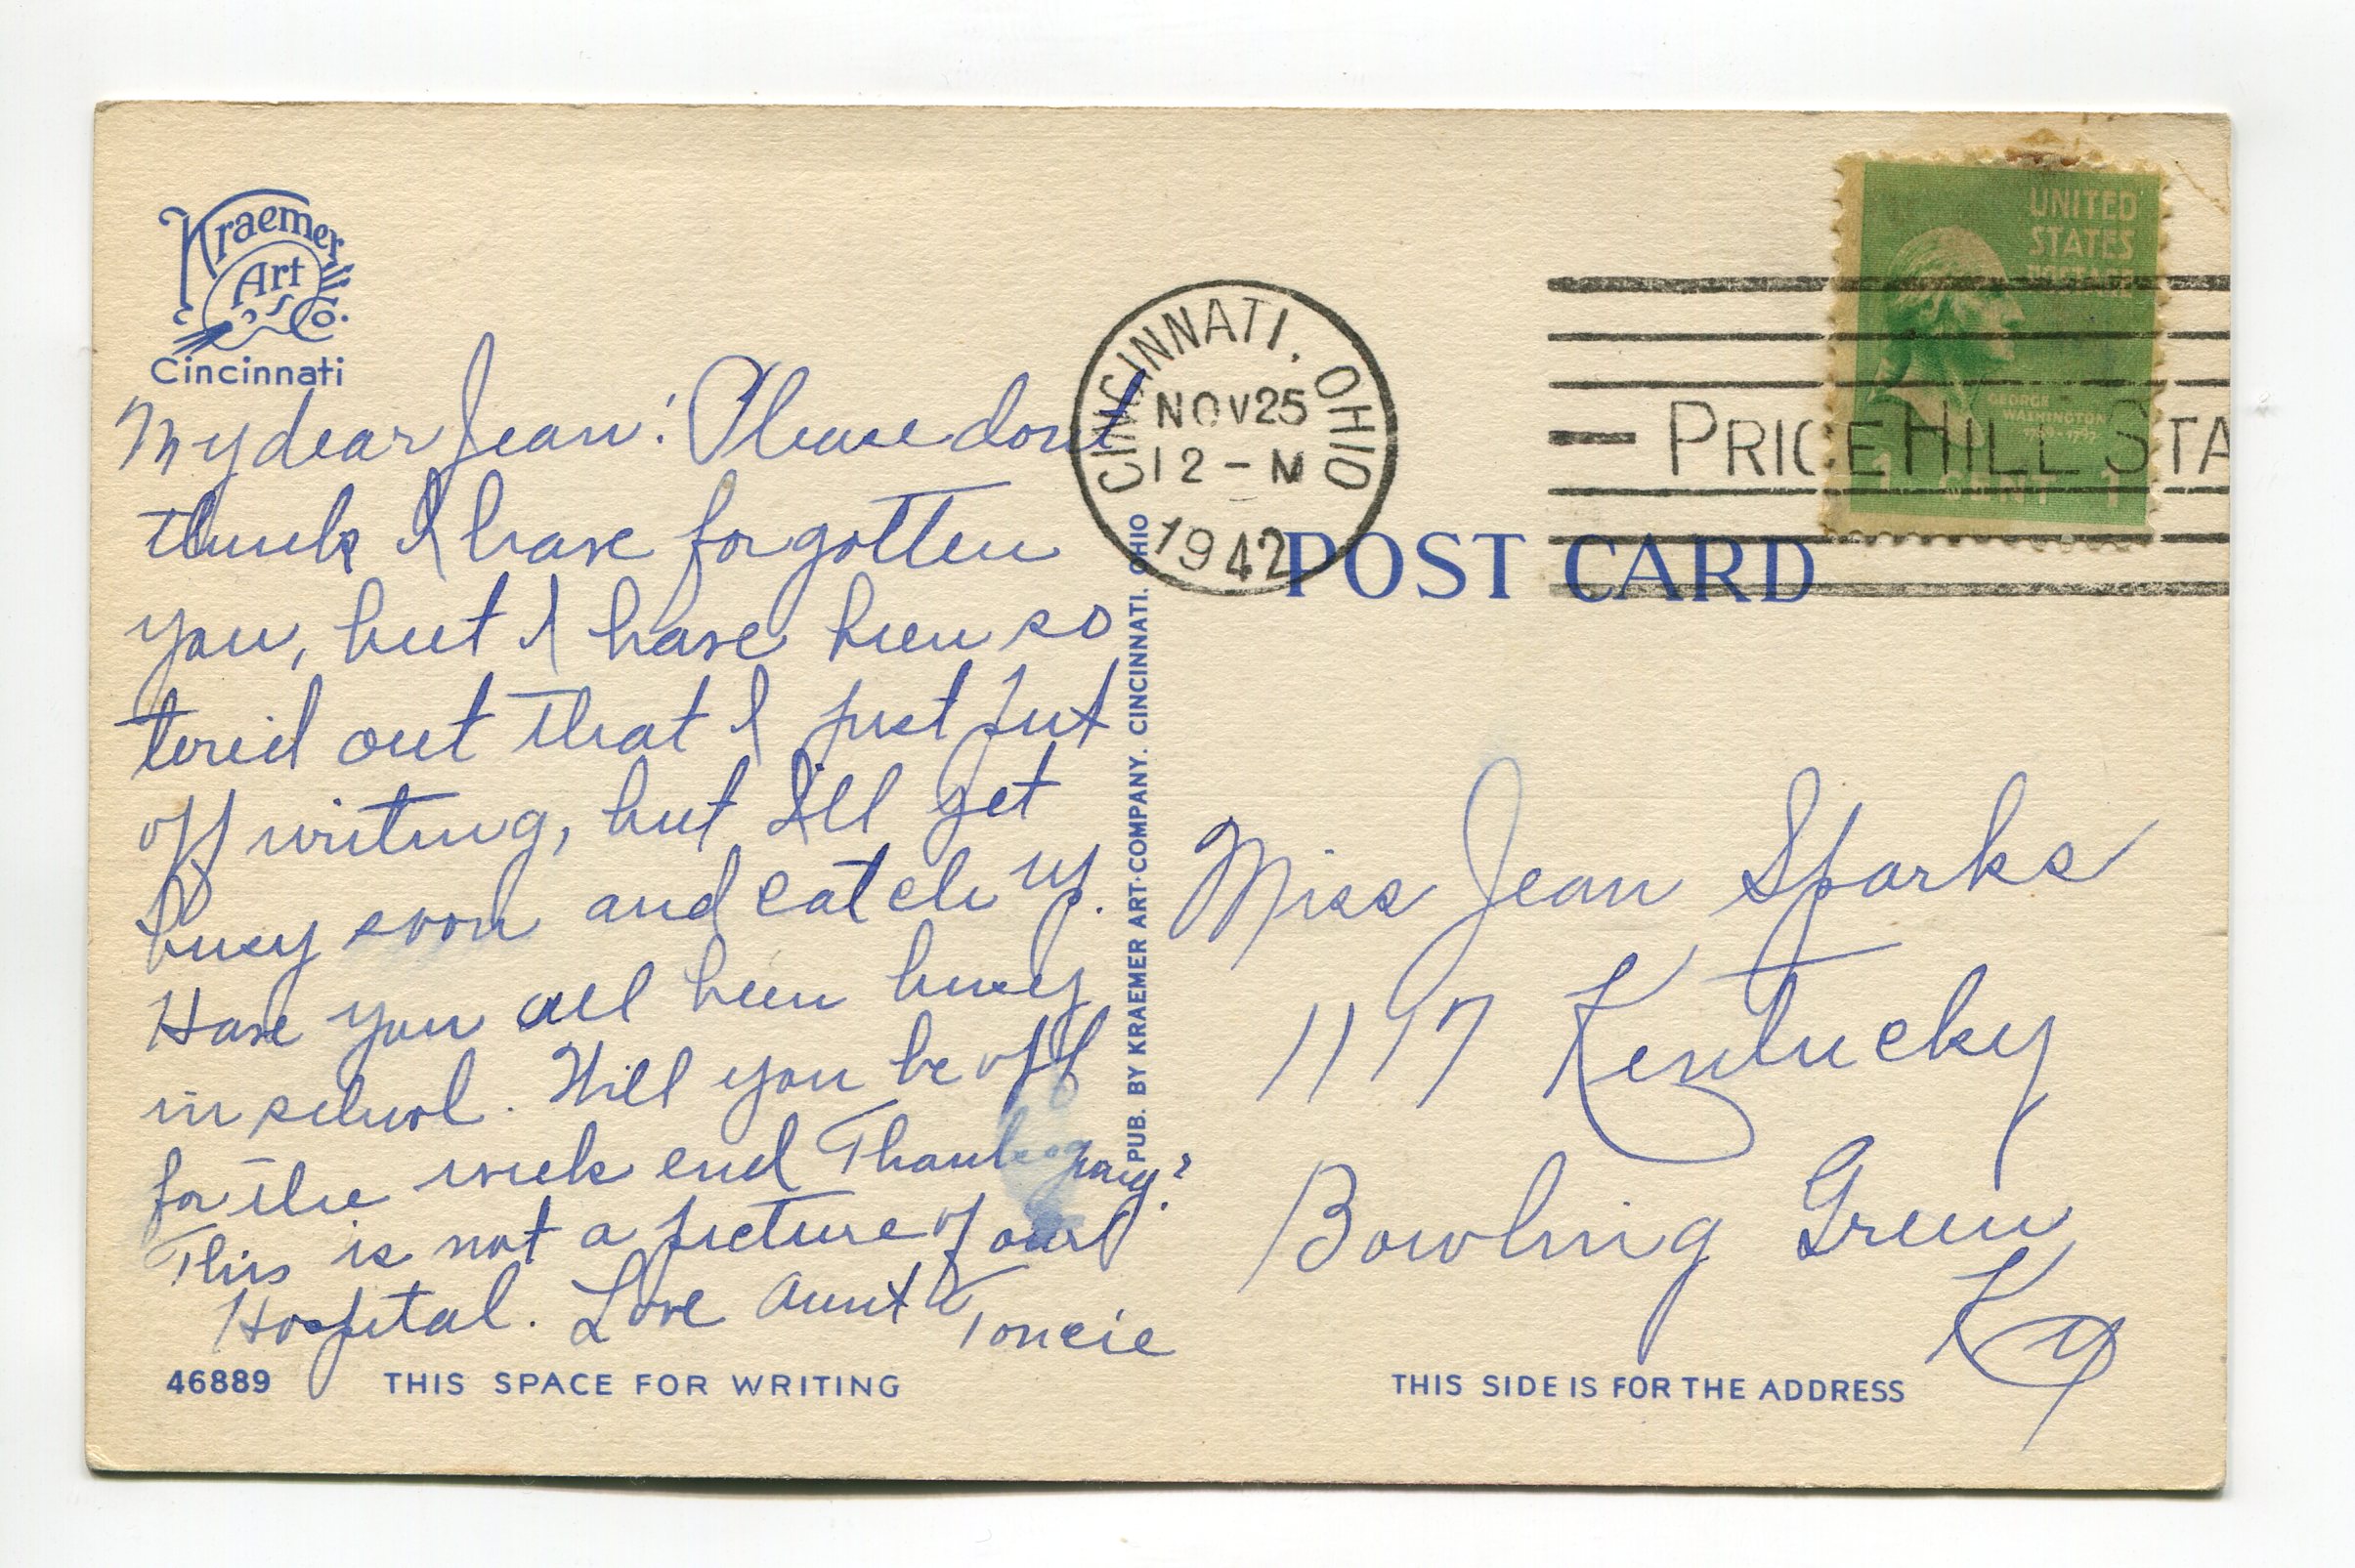 Kraemer
Art
Co.
Cincinnati
My dear Jean: Please don't
think I have forgotten
you, but I have been so
tired out that I just put
off writing, but I'll get
busy soon and catch up.
Have you all been busy
in school. Will you be off
for the week end Thanksgiving?
This is not a picture of our
Hospital. Love Aunt
46889 THIS SPACE FOR WRITING
PUB. BY KRAEMER ART COMPANY. CINCINNATI. OHIO
CINCINNATI. OHIO
NOV 25
12 - M
1942
PRICE HILL STA
UNITED
STATES
POSTAGE
GEORGE
WASHINGTON
1 CENT 1
POST CARD
Miss Jean Sparks
1197 Kentucky
Bowling Green
Ky
THIS SIDE IS FOR THE ADDRESS